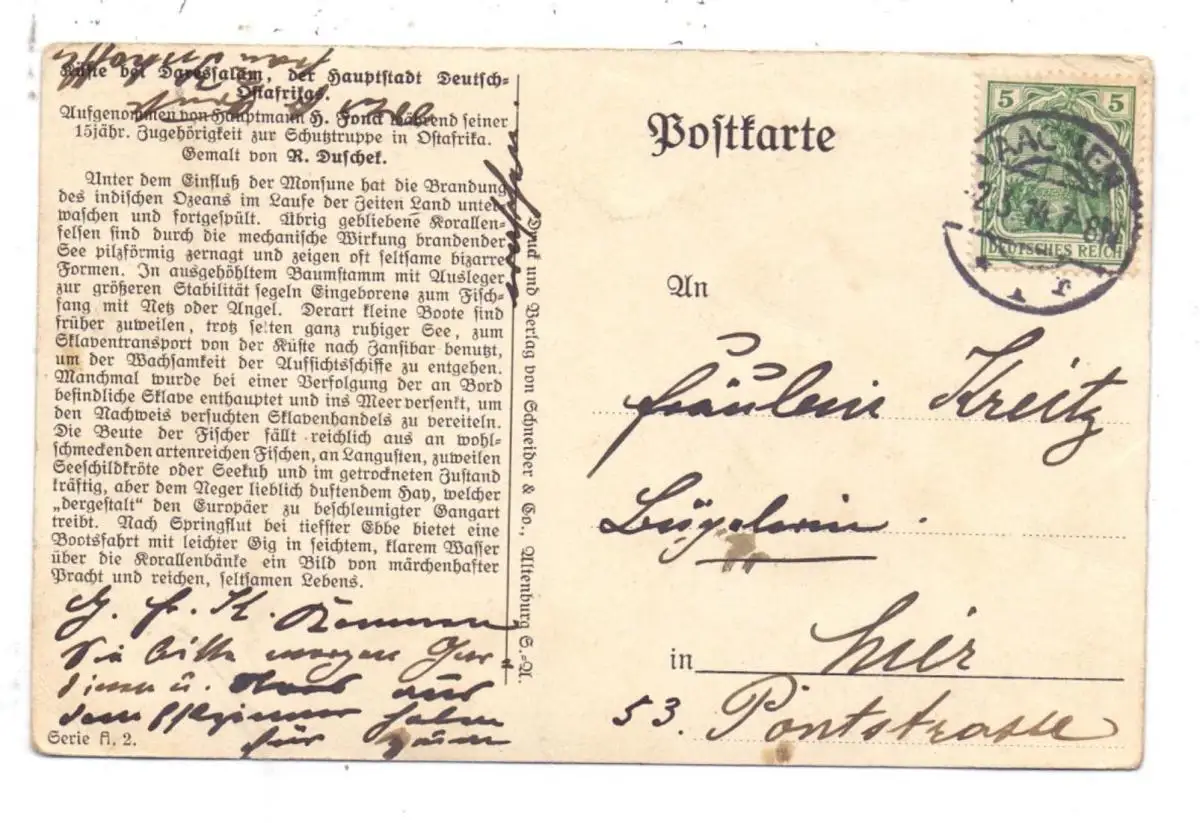 Küste bei Daressalam, der Hauptstadt Deutsch-
Ostafrikas.
Aufgenommen von Hauptmann H. Fonck während seiner
15jähr. Zugehörigkeit zur Schutztruppe in Ostafrika.
Gemalt von R. Duschek.
Unter dem Einfluß der Monsune hat die Brandung
des indischen Ozeans im Laufe der Zeiten Land unter-
waschen und fortgespült. Übrig gebliebene Korallen-
felsen sind durch die mechanische Wirkung brandender
See pilzförmig zernagt und zeigen oft seltsame bizarre
Formen. In ausgehöhltem Baumstamm mit Ausleger
zur größeren Stabilität segeln Eingeborene zum Fisch-
fang mit Netz oder Angel. Derart kleine Boote sind
früher zuweilen, trotz selten ganz ruhiger See, zum
Sklaventransport von der Küste nach Zansibar benutzt,
um der Wachsamkeit der Aufsichtsschiffe zu entgehen.
Manchmal wurde bei einer Verfolgung der an Bord
befindliche Sklave enthauptet und ins Meer versenkt, um
den Nachweis versuchten Sklavenhandels zu vereiteln.
Die Beute der Fischer fällt reichlich aus an wohl-
schmeckenden artenreichen Fischen, an Langusten, zuweilen
Seeschildkröte oder Seekuh und im getrockneten Zustand
kräftig, aber dem Neger lieblich duftendem Hay, welcher
„dergestalt" den Europäer zu beschleunigter Gangart
treibt. Nach Springflut bei tiefster Ebbe bietet eine
Bootsfahrt mit leichter Gig in seichtem, klarem Wasser
über die Korallenbänke ein Bild von märchenhafter
Pracht und reichen, seltsamen Lebens.
G. f. K. Kommen
Sie bitte morgen
u. aus
dem holen
für
Serie A. 2.
Druck und Verlag von Schneider & Co., Altenburg S.-A.
Postkarte
5 5
DEUTSCHES REICH
AACHEN
An
Fräulein Kreitz
Büglerin.
in hier
53. Pontstrasse